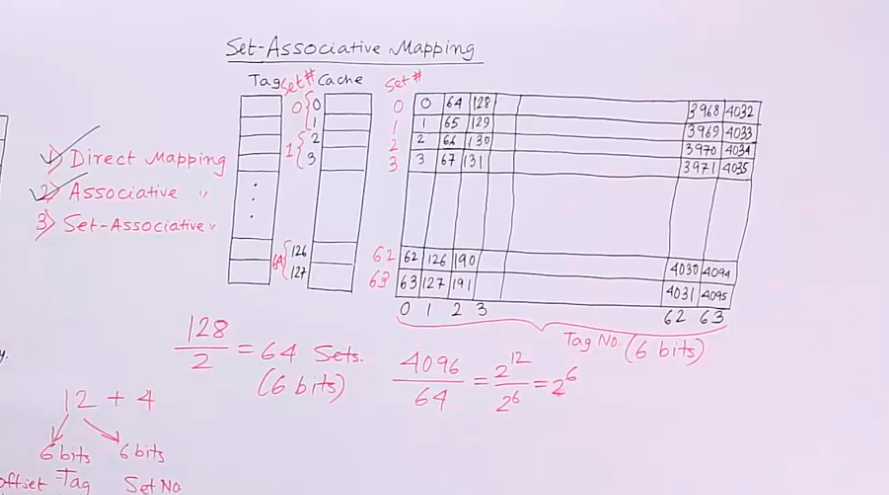 Set-Associative Mapping
Tag Set# Cache Set#
0 0 0 0 64 128 3968 4032
1 1 1 65 129 3969 4033
1 2 2 2 66 130 3970 4034
3 3 3 67 131 3971 4035
1) Direct Mapping
2) Associative "
3) Set-Associative "
64 126 62 62 126 190 4030 4094
127 63 63 127 191 4031 4095
0 1 2 3 62 63
Tag No. (6 bits)
128/2 = 64 Sets.
(6 bits)
4096/64 = 2^12/2^6 = 2^6
y.
12 + 4
6 bits 6 bits
offset Tag Set No